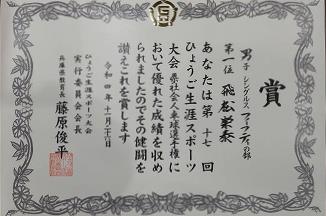 賞
男子 シングルス フィフティの部
第一位 飛松栄泰
あなたは第十七回
ひょうご生涯スポーツ
大会 県社会人卓球選手権に
おいて優れた成績を収め
られましたのでその健闘を
讃えこれを賞します
令和四年十一月二十七日
ひょうご生涯スポーツ大会
実行委員会会長
兵庫県教育長
藤原俊平